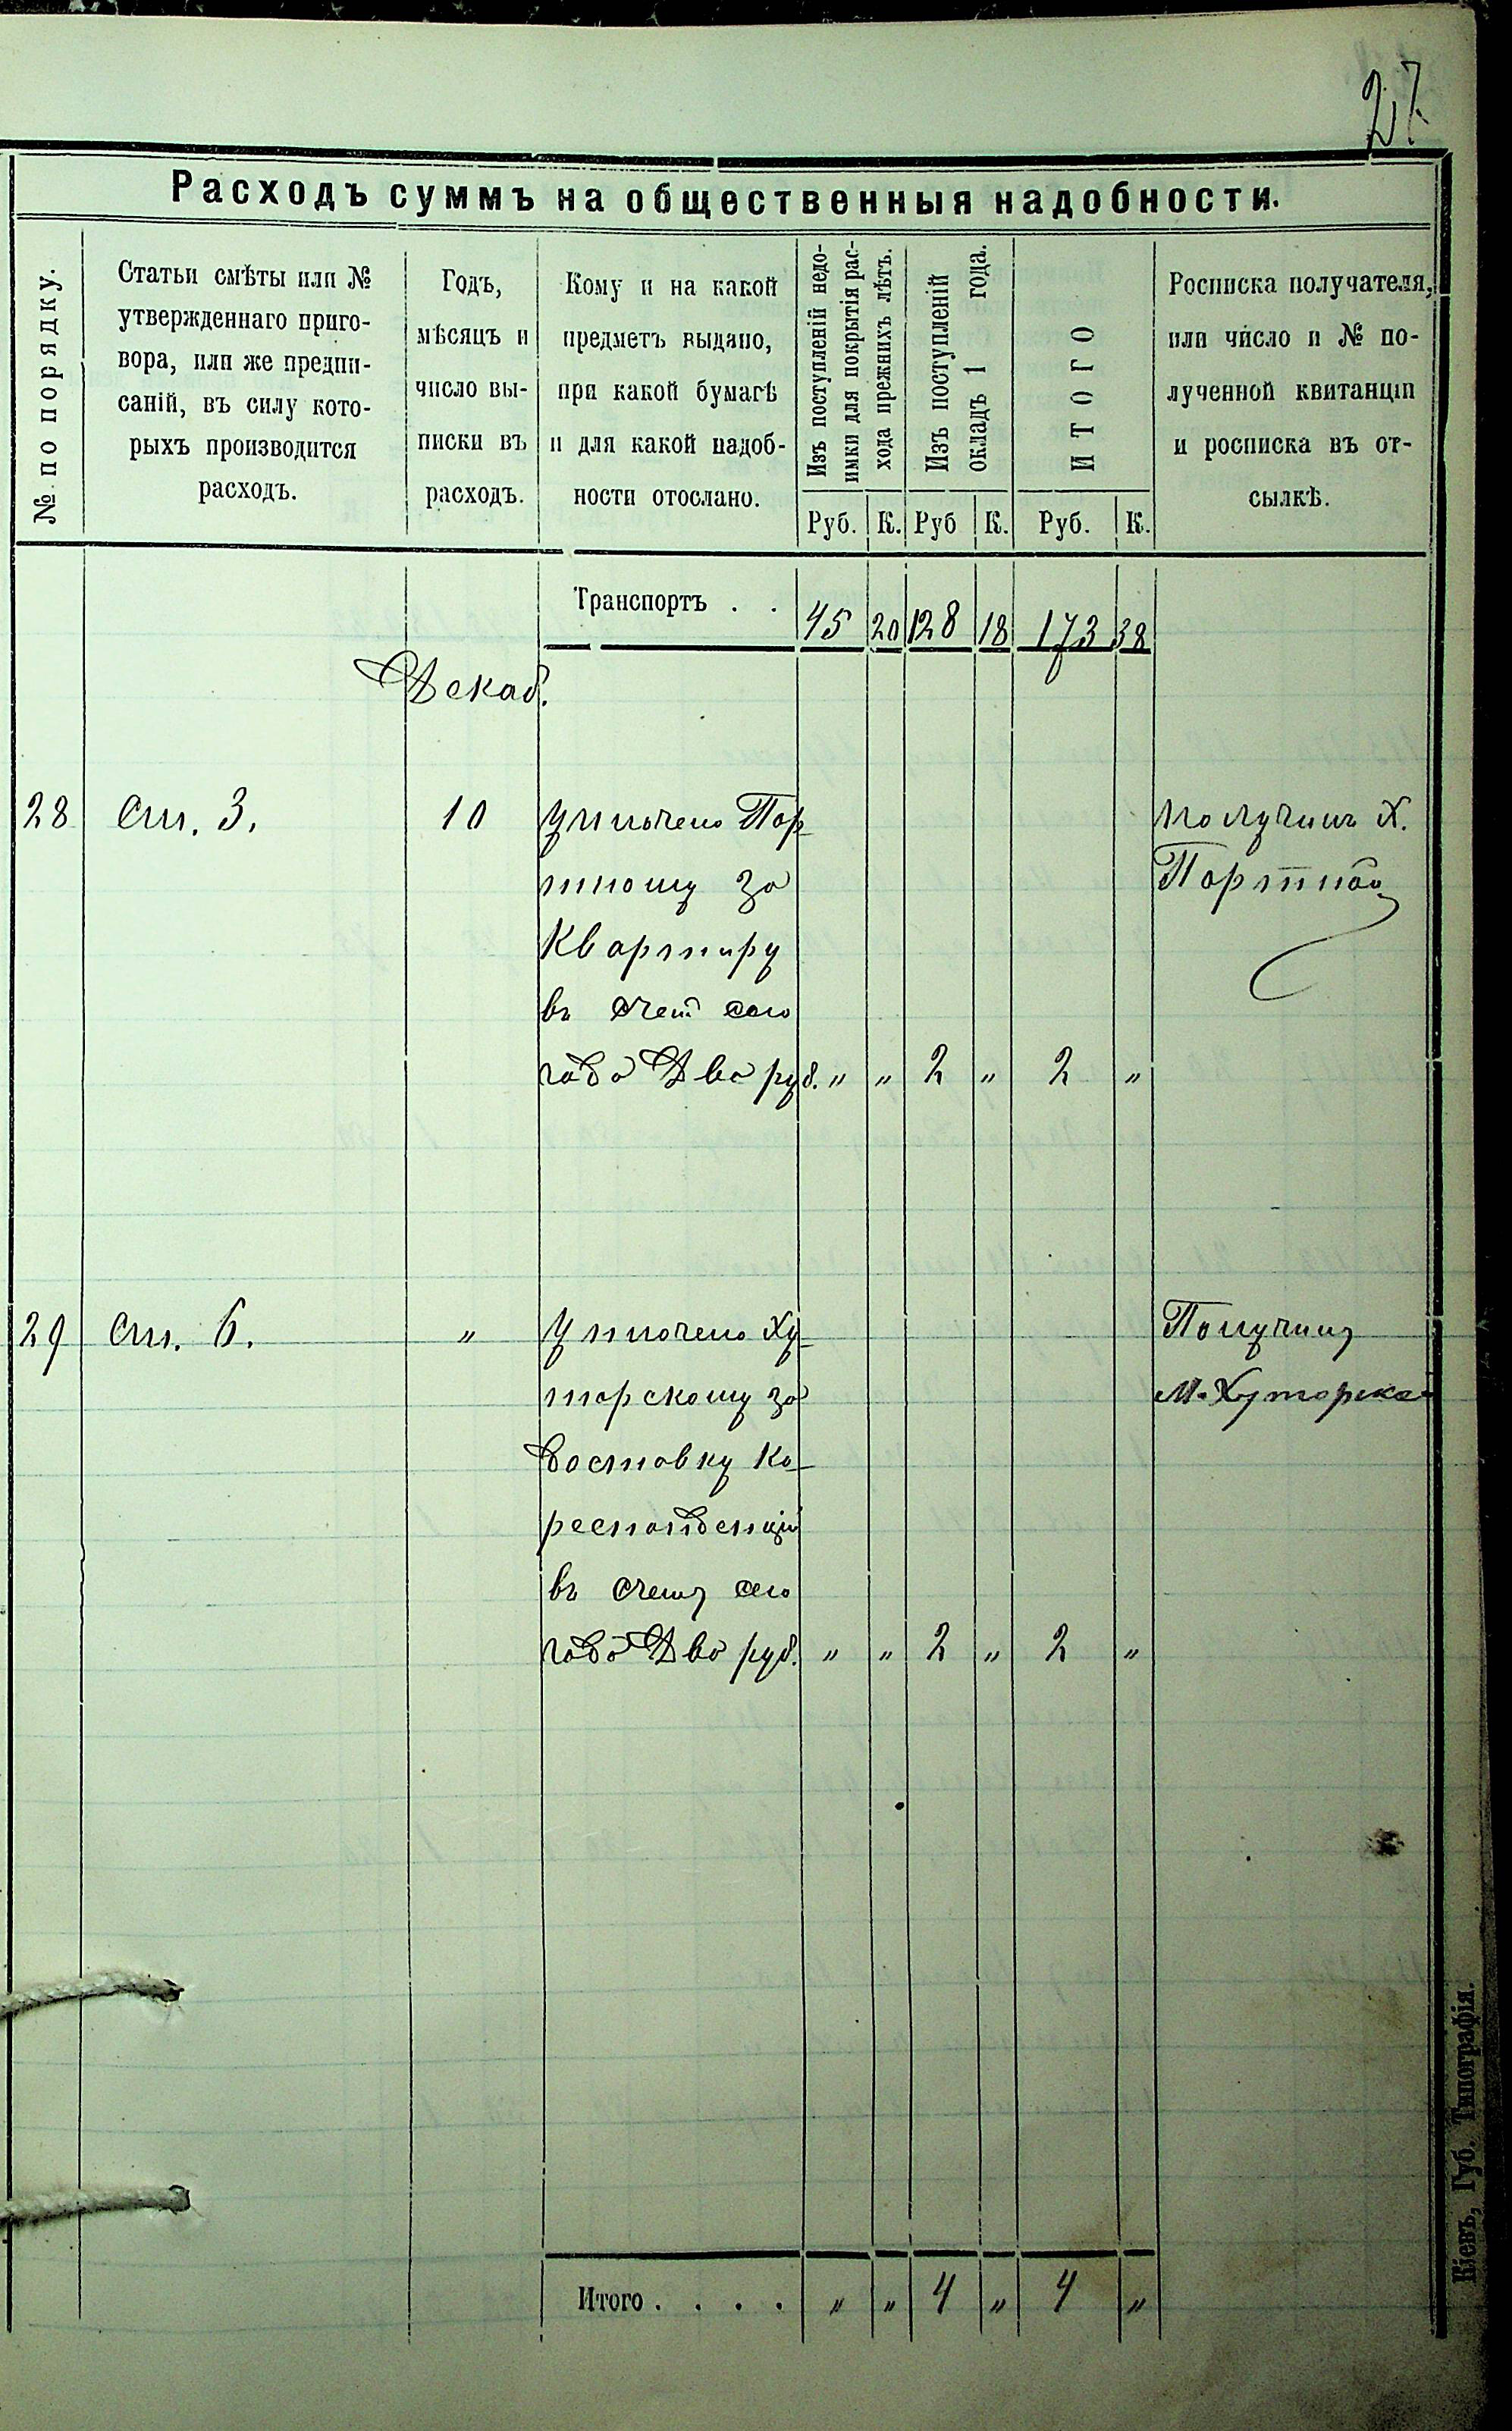 27
Расходъ суммъ на общественныя надобности.
№ по порядку.
Статьи смѣты или №
утвержденнаго приго-
вора, или же предпи-
саній, въ силу кото-
рыхъ производится
расходъ.
Годъ,
мѣсяцъ и
число вы-
писки въ
расходъ.
Кому и на какой
предметъ выдано,
при какой бумагѣ
и для какой надоб-
ности отослано.
Изъ поступленій недо-
имки для покрытія рас-
хода прежнихъ лѣтъ.
Изъ поступленій
окладъ 1 года.
ИТОГО
Росписка получателя,
или число и № по-
лученной квитанціи
и росписка въ от-
сылкѣ.
Руб. К. Руб К. Руб. К.
Транспортъ . . 45 20 128 18 173 38
Декаб.
28 ст. 3. 10 уплочено Пор
тному за
квартиру
въ счет сего
года Два руб. " " 2 " 2 "
получилъ Х.
Портной
29 ст. 6. " Уплочено Ху-
торскому за
доставку ко-
респонденцiи
въ счетъ сего
года Два руб. " " 2 " 2 "
Получилъ
М. Хуторска
Итого . . . . " " 4 " 4 "
Кіевъ, Губ. Типографія.